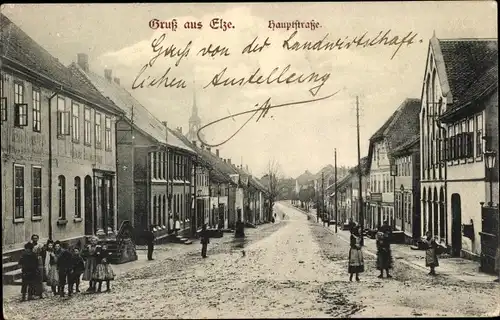 Gruß aus Elze. Hauptstraße.
Gruß von der Landwirtschaft.
lichen Austellung